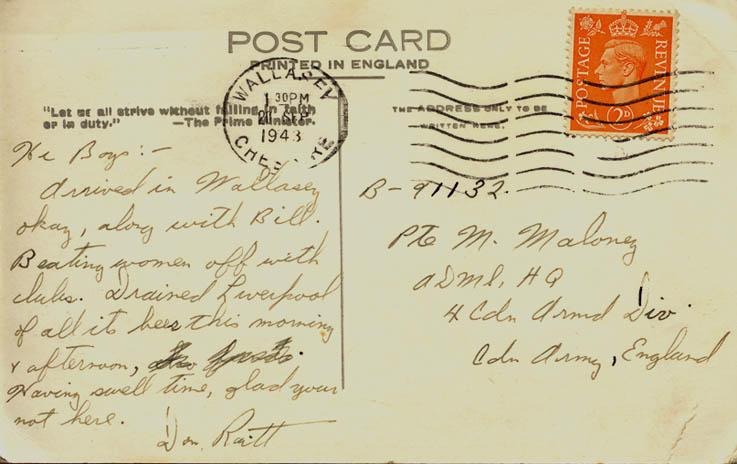 POST CARD
PRINTED IN ENGLAND
"Let us all strive without failing in faith
or in duty." —The Prime Minister.
WALLASEY
1 30PM
21 SEP
1943
CHESHIRE
THE ADDRESS ONLY TO BE
WRITTEN HERE.
POSTAGE REVENUE
2D
Hi Boys:-
Arrived in Wallasey
okay, along with Bill.
Beating women off with
clubs. Drained Liverpool
of all its beer this morning
& afternoon,
Having swell time, glad your
not here.
Don Raitt
B-91132.
Pte M. Maloney
ADMS, HQ
4 Cdn Armd Div.
Cdn Army, England